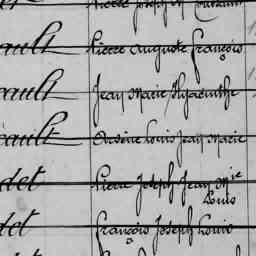 Pierre Joseph M
ault Pierre Auguste François
ault Jean Marie Hyacinthe
ault Arsène Louis Jean Marie
det Pierre Joseph Jean Mie
Louis
det François Joseph Louis